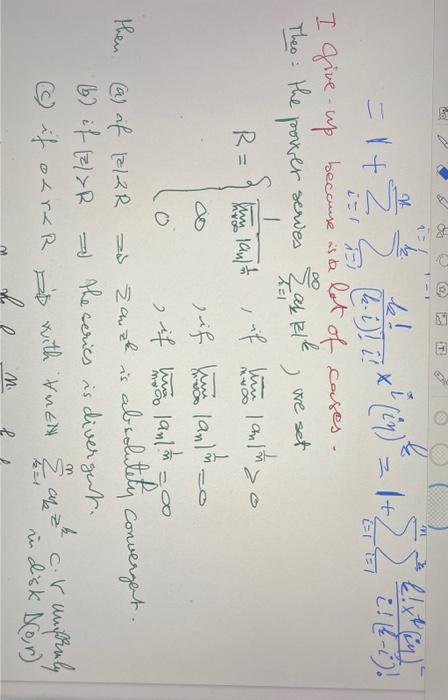 = 1 + Σ Σ k!/(k-i)! i! x^i (iy)^k = 1 + Σ Σ k! x^k (iy)^i / i!(k-i)!
I give-up because is a lot of cases.
Theo: the power series Σ_{k=1}^∞ a_k z^k, we set
R = { 1/lim_{n→∞} |a_n|^{1/n}, if lim_{n→∞} |a_n|^{1/n} > 0
∞, if lim_{n→∞} |a_n|^{1/n} = 0
0, if lim_{n→∞} |a_n|^{1/n} = ∞
then. (a) if |z| < R ⇒ Σ a_k z^k is absolutely convergent.
(b) if |z| > R ⇒ the series is divergent.
(c) if 0 < r < R ⇒ with ∀n∈N Σ_{k=1}^n a_k z^k c.v uniformly
in disk D(0,r)